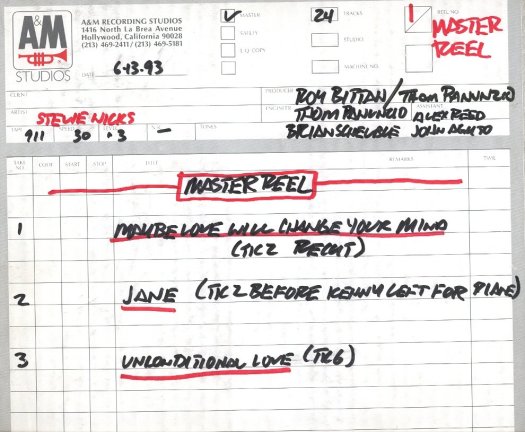 A&M
STUDIOS
A&M RECORDING STUDIOS
1416 North La Brea Avenue
Hollywood, California 90028
(213) 469-2411/ (213) 469-5181
DATE 6·13·93
✓ MASTER 24 TRACKS 1 REEL NO.
SAFETY STUDIO MASTER
MACHINE NO. REEL
CLIENT PRODUCER ROY BITTAN/THOM PANUNZIO
ARTIST STEVIE NICKS ENGINEER THOM PANUNZIO ASSISTANT ALEX REED
911 30 +3 — TONES BRIAN SCHEUBLE JOHN AGUTO
TAKE NO. CODE START STOP TITLE REMARKS TIME
MASTER REEL
1 MAYBE LOVE WILL CHANGE YOUR MIND
(TK 2 RECUT)
2 JANE (TK 2 BEFORE KENNY LEFT FOR PLANE)
3 UNCONDITIONAL LOVE (TK 6)